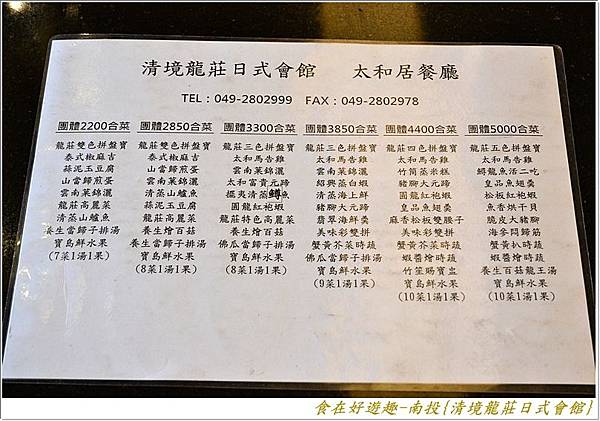 清境龍莊日式會館 太和居餐廳
TEL：049-2802999 FAX：049-2802978
團體2200合菜
龍莊雙色拼盤寶
泰式椒麻吉
蒜泥玉豆腐
山當歸煎蛋
雲南菜錦灑
龍莊高麗菜
清蒸山爐魚
養生當歸子排湯
寶島鮮水果
(7菜1湯1果)
團體2850合菜
龍莊雙色拼盤寶
泰式椒麻吉
山當歸煎蛋
雲南菜錦灑
清蒸山爐魚
圓龍紅袍蝦
蒜泥玉豆腐
龍莊高麗菜
養生當歸子排湯
寶島鮮水果
(8菜1湯1果)
團體3300合菜
龍莊三色拼盤寶
太和馬告雞
雲南菜錦灑
太和富貴元蹄
擺夷清蒸鱒魚
圓龍紅袍蝦
龍莊特色高麗菜
養生燴百菇
佛瓜當歸子排湯
寶島鮮水果
(8菜1湯1果)
團體3850合菜
龍莊三色拼盤寶
太和馬告雞
雲南菜錦灑
紹興蒸白蝦
清蒸海上鮮
豬腳大元蹄
翡翠海鮮羹
美味彩雙拼
蟹黃芥菜時蔬
佛瓜當歸子排湯
寶島鮮水果
(9菜1湯1果)
團體4400合菜
龍莊四色拼盤寶
太和馬告雞
竹筒蒸米糕
豬腳大元蹄
圓龍紅袍蝦
皇品魚翅羹
麻香松板雙脆子
美味彩雙拼
蟹黃芥菜時蔬
蝦醬燴時蔬
竹笙賜寶盅
寶島鮮水果
(10菜1湯1果)
團體5000合菜
龍莊五色拼盤寶
鱘龍魚活二吃
皇品魚翅羹
松板紅袍蝦
魚香烘干貝
脆皮大豬腳
海參悶蹄筋
蟹黃扒時蔬
蝦醬燴時蔬
養生百菇龍王湯
寶島鮮水果
(10菜1湯1果)
食在好遊趣-南投{清境龍莊日式會館}